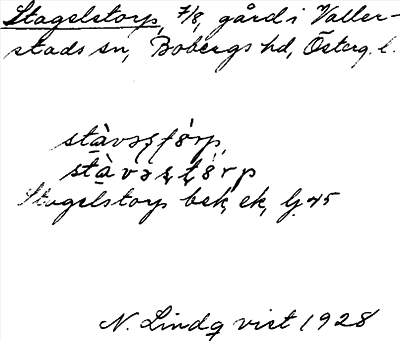 Stagelstorp, 7/8, gård i Valler-
stads sn, Bobergs hd, Österg. l.
stàvəʂʈórp,
stàvəʂʈórp
Stagelstorp bek, ek, G 45
N. Lindqvist 1928